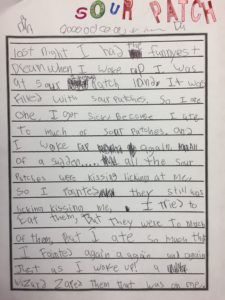 SOUR PATCH
last night I had funnyest
Dream when I woke up I was
at sour patch land. It was
filled with sour patches, So I ate
one, I got sick because I ate
to much of sour patches, and
I woke up again.
of a sudden all the sour
patches were kissing licking at me,
So I fainted they still was
licking kissing me, I tried to
Eat them, But they were to much
of them, But I ate so much that
I fainted again a again and again
Just as I woke up! a
wizard zaped them that was on me.